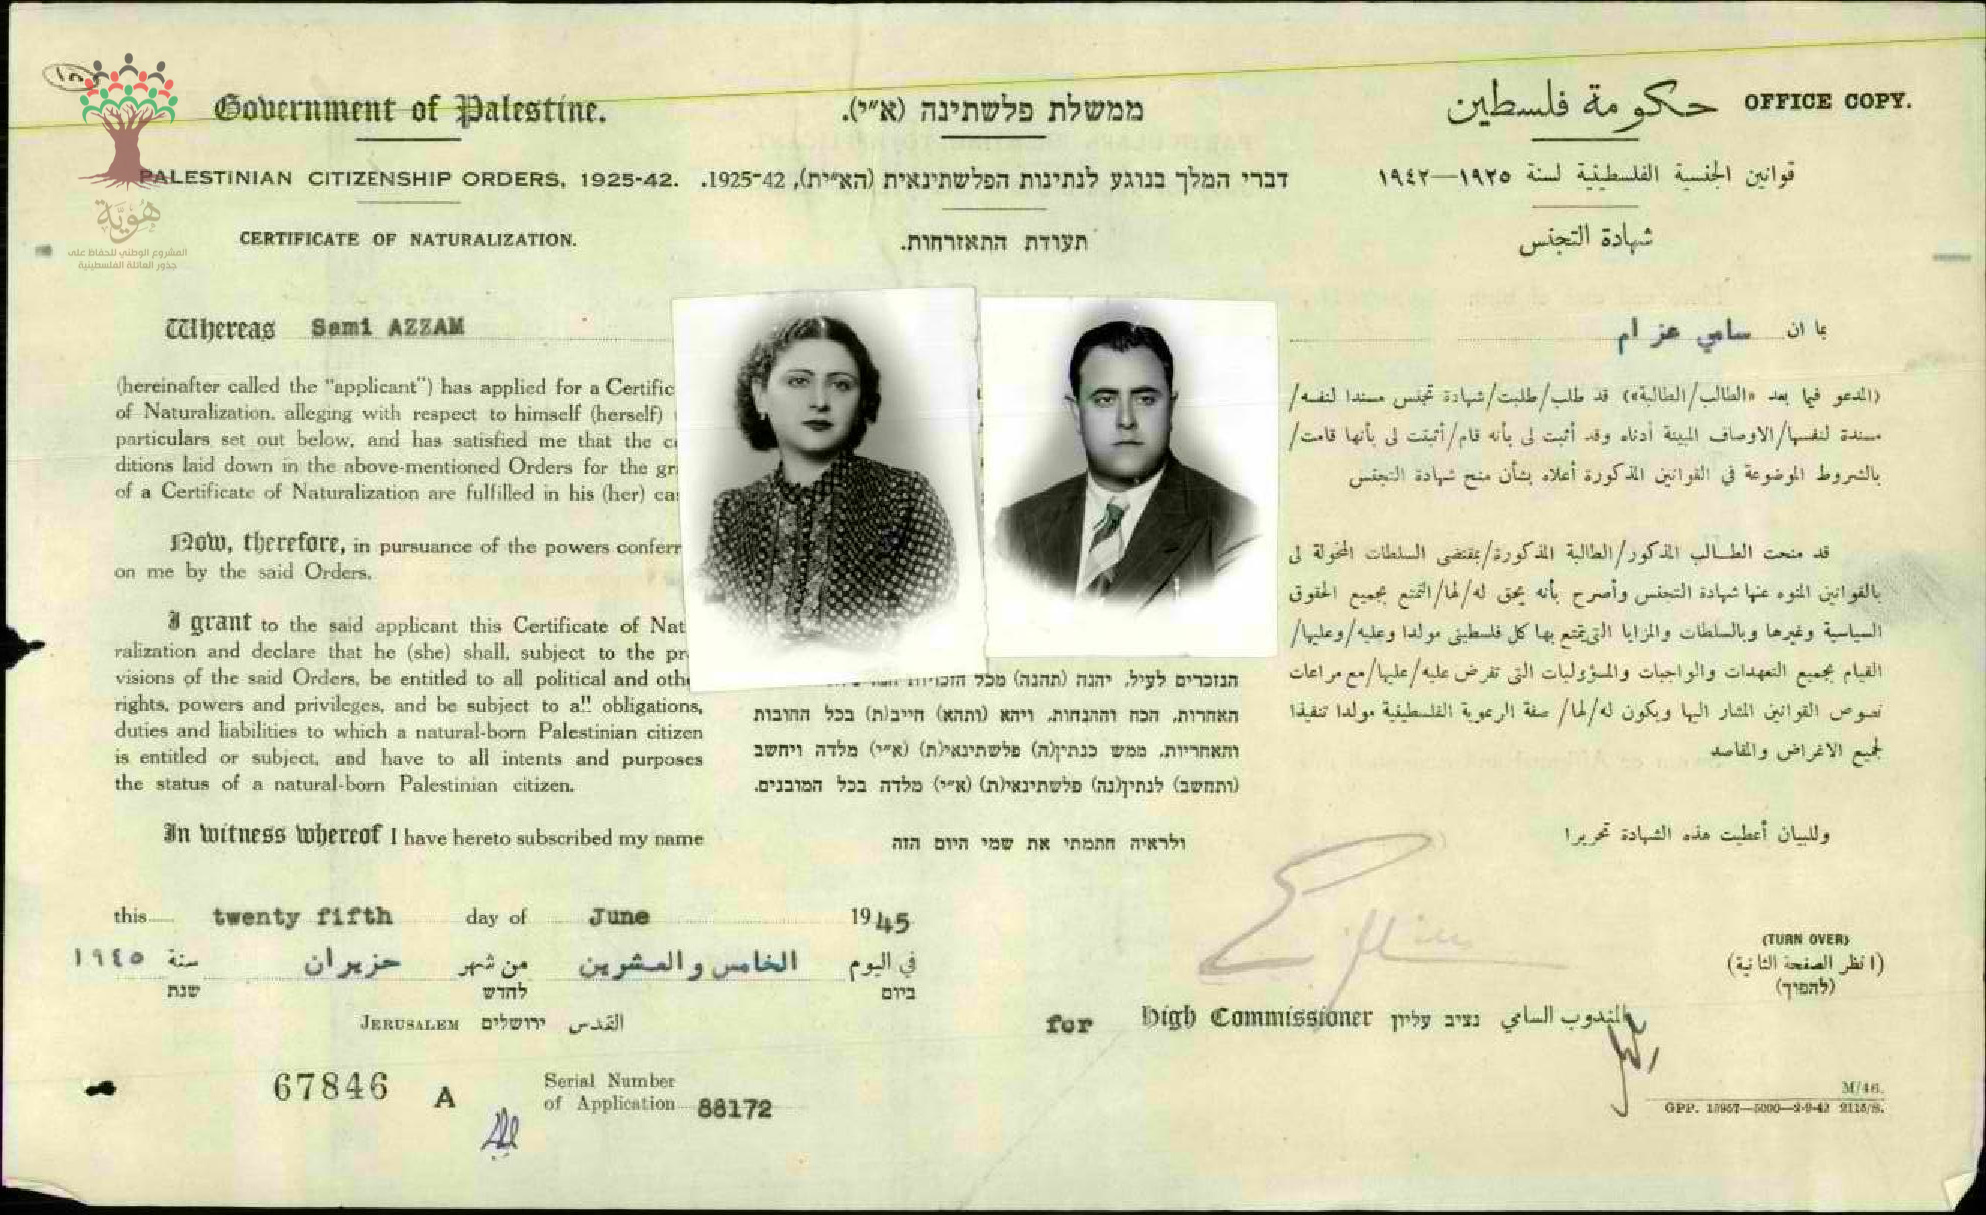 OFFICE COPY.
Government of Palestine.
ממשלת פלשתינה (א״י).
حكومة فلسطين
PALESTINIAN CITIZENSHIP ORDERS, 1925-42.
דברי המלך בנוגע לנתינות הפלשתינאית (הא״ית), 1925-42.
قوانين الجنسية الفلسطينية لسنة ١٩٢٥—١٩٤٢
CERTIFICATE OF NATURALIZATION.
תעודת התאזרחות.
شهادة التجنس
هُوِيَّة
المشروع الوطني للحفاظ على
جذور العائلة الفلسطينية
Whereas Sami AZZAM
(hereinafter called the "applicant") has applied for a Certific
of Naturalization, alleging with respect to himself (herself)
particulars set out below, and has satisfied me that the c
ditions laid down in the above-mentioned Orders for the gr
of a Certificate of Naturalization are fulfilled in his (her) ca
Now, therefore, in pursuance of the powers conferr
on me by the said Orders,
I grant to the said applicant this Certificate of Nat
ralization and declare that he (she) shall, subject to the pr
visions of the said Orders, be entitled to all political and oth
rights, powers and privileges, and be subject to all obligations,
duties and liabilities to which a natural-born Palestinian citizen
is entitled or subject, and have to all intents and purposes
the status of a natural-born Palestinian citizen.
In witness whereof I have hereto subscribed my name
הנזכרים לעיל, יהנה (תהנה) מכל הזכויות
האחרות, הכח וההנחות, ויהא (ותהא) חייב(ת) בכל החובות
והאחריות, ממש כנתין(ה) פלשתינאי(ת) (א״י) מלדה ויחשב
(ותחשב) לנתין(נה) פלשתינאי(ת) (א״י) מלדה בכל המובנים.
ולראיה חתמתי את שמי היום הזה
بما ان سامي عزام
(المدعو فيما بعد «الطالب/الطالبة») قد طلب/طلبت/شهادة تجنس مسندا لنفسه/
مسندة لنفسها/الاوصاف المبينة أدناه وقد أثبت لي بأنه قام/أثبتت لي بأنها قامت/
بالشروط الموضوعة في القوانين المذكورة أعلاه بشأن منح شهادة التجنس
قد منحت الطالب المذكور/الطالبة المذكورة/بمقتضى السلطات المخولة لي
بالقوانين المنوه عنها شهادة التجنس وأصرح بأنه يحق له/لها/التمتع بجميع الحقوق
السياسية وغيرها وبالسلطات والمزايا التي يتمتع بها كل فلسطيني مولدا وعليه/وعليها/
القيام بجميع التعهدات والواجبات والمسؤوليات التي تفرض عليه/عليها/مع مراعات
نصوص القوانين المشار اليها ويكون له/لها/ صفة الرعوية الفلسطينية مولدا تنفيذا
لجميع الاغراض والمقاصد
وللبيان أعطيت هذه الشهادة تحريرا
this twenty fifth day of June 1945
في اليوم الخامس والعشرين من شهر حزيران سنة ١٩٤٥
ביום לחדש שנת
JERUSALEM ירושלים القدس
(TURN OVER)
(انظر الصفحة الثانية)
(להפיך)
for High Commissioner נציב עליון المندوب السامي
67846 A
Serial Number
of Application 88172
M/46.
GPP. 15957—5000—2-9-42 2115/S.